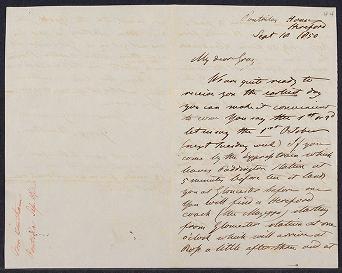 44
Pontrilas House
Hereford
Sept 10 1850
My dear Gray
We are quite ready to
receive you the earliest day
you can make it convenient
to come You say the 1st or 2d
let us say the 1st October
(next Tuesday week) If you
come by the express train which
leaves Paddington Station at
5 minutes before ten it lands
you at Gloucester before one
You will find a Hereford
coach (the Mazeppa) starting
from Gloucester station at one
o'clock which will arrive at
Ross a little after three and at